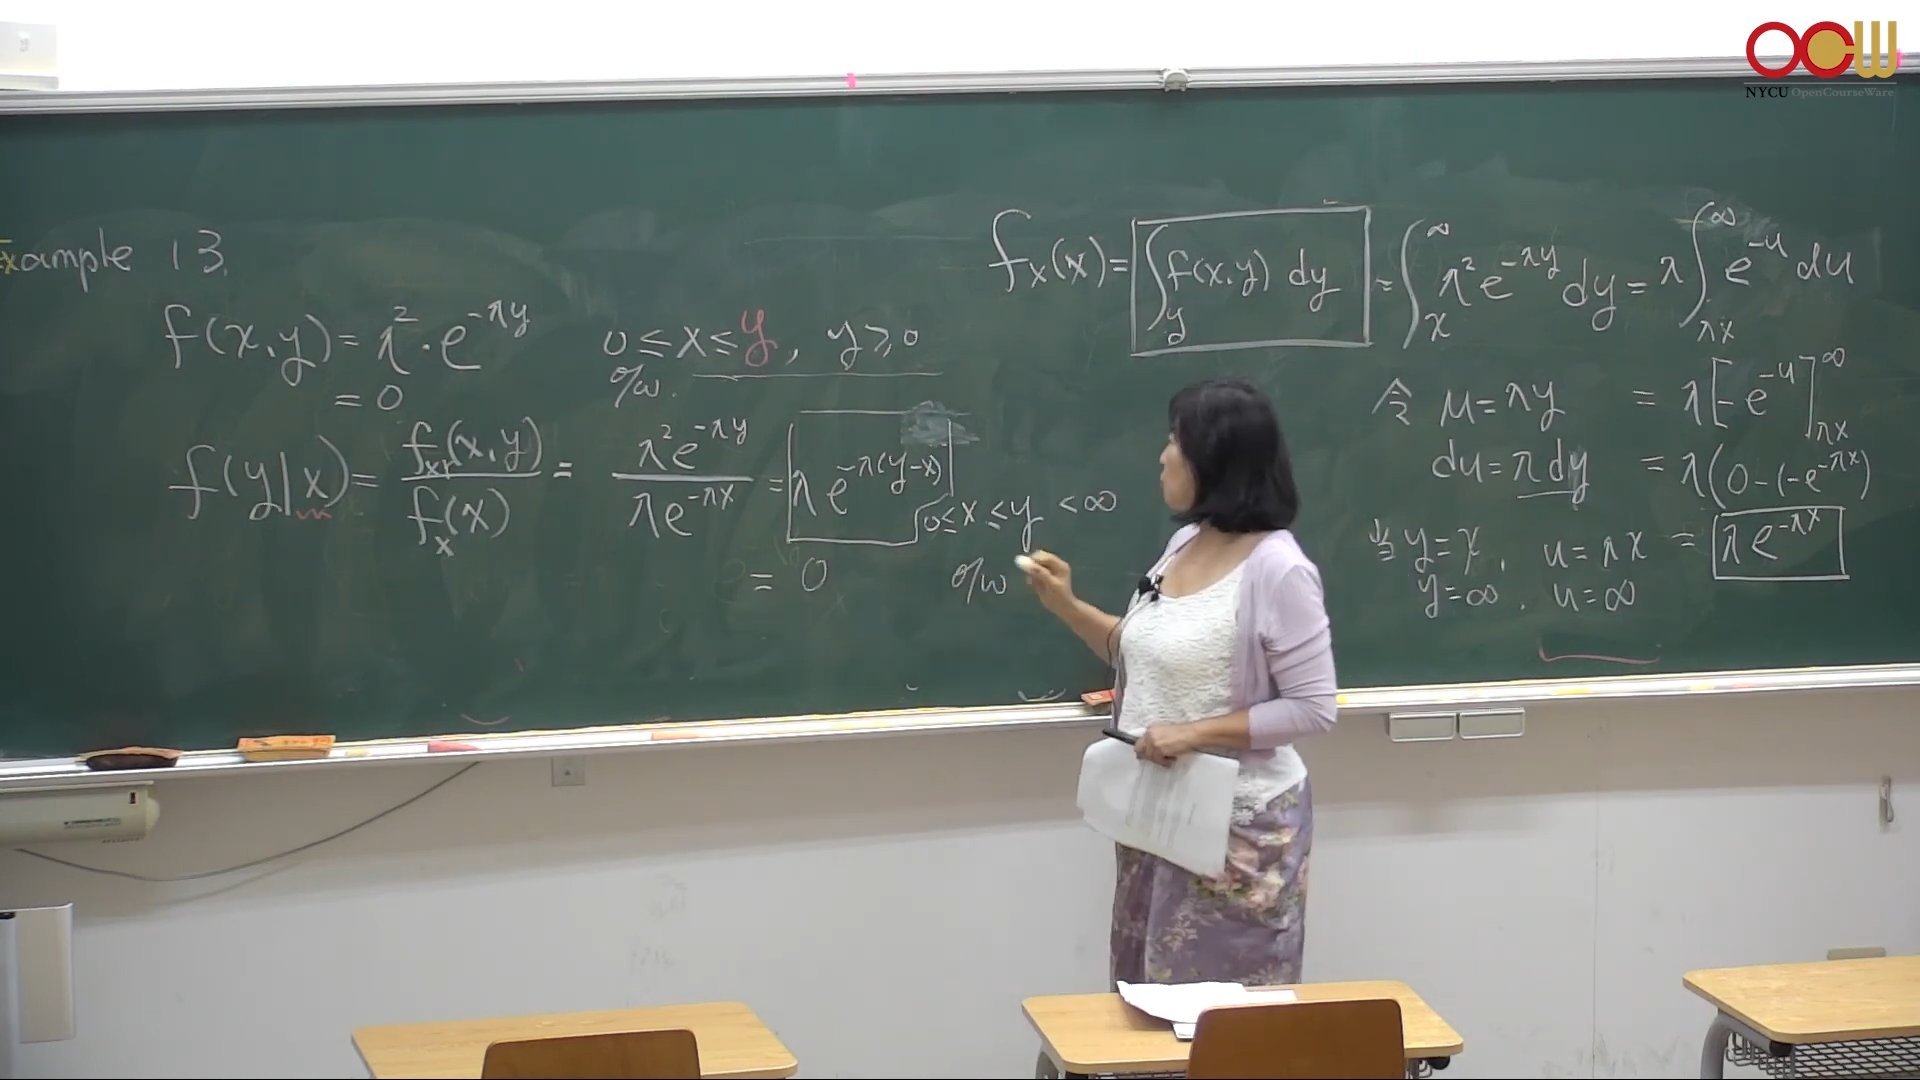 OCW
NYCU OpenCourseWare
Example 13.
f(x,y) = λ²·e^{-λy}   0≤x≤y, y≥0
= 0   o/w.
f(y|x) = f_{XY}(x,y) / f_X(x) = λ²e^{-λy} / λe^{-λx} = λe^{-λ(y-x)}   0≤x≤y<∞
= 0   o/w
f_X(x) = ∫_y f(x,y) dy = ∫_x^∞ λ²e^{-λy} dy = λ∫_{λx}^∞ e^{-u} du
令 u=λy   = λ[-e^{-u}]_{λx}^∞
du=λdy   = λ(0-(-e^{-λx})
當 y=x, u=λx   = λe^{-λx}
y=∞, u=∞